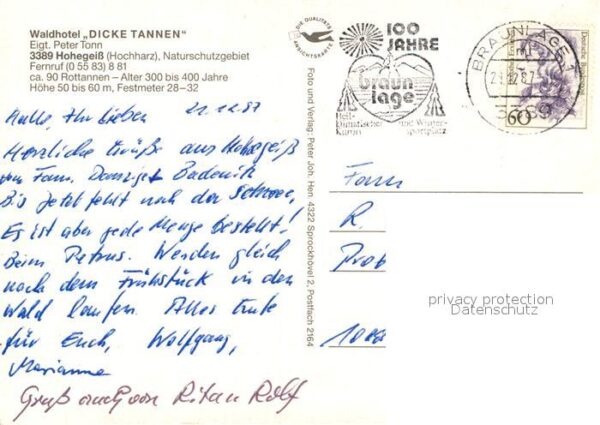 Waldhotel „DICKE TANNEN"
Eigt. Peter Tonn
3389 Hohegeiß (Hochharz), Naturschutzgebiet
Fernruf (0 55 83) 8 81
ca. 90 Rottannen – Alter 300 bis 400 Jahre
Höhe 50 bis 60 m, Festmeter 28–32
Hallo, Ihr Lieben 21.12.87
Herzliche Grüße aus Hohegeiß
von Fam.
Bis jetzt fehlt noch der Schnee,
Es ist aber jede Menge bestellt!
Beim Petrus. Werden gleich
nach dem Frühstück in den
Wald laufen. Alles Gute
für Euch, Wolfgang,
Marianne
Gruß auch von Rita u Rolf
DIE QUALITÄTS
ANSICHTSKARTE
Foto und Verlag: Peter Joh. Hen. 4322 Sprockhövel 2, Postfach 2164
100
JAHRE
braun
lage
Heil-
klimatischer
Kurort
und Winter-
sportplatz
BRAUNLAGE 1
3389
60
Fam
R.
Prob
privacy protection
Datenschutz